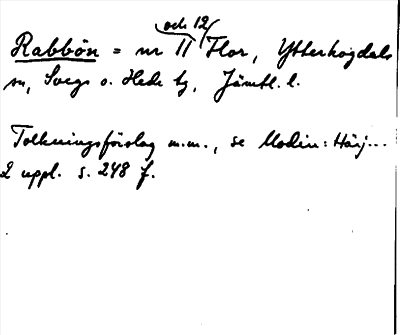 och 12
Rabbön = nr 11 Flor, Ytterhogdals
sn, Svegs o. Hede tg, Jämtl. l.
Tolkningsförslag m.m., se Modin: Härj...
2 uppl. s. 248 f.